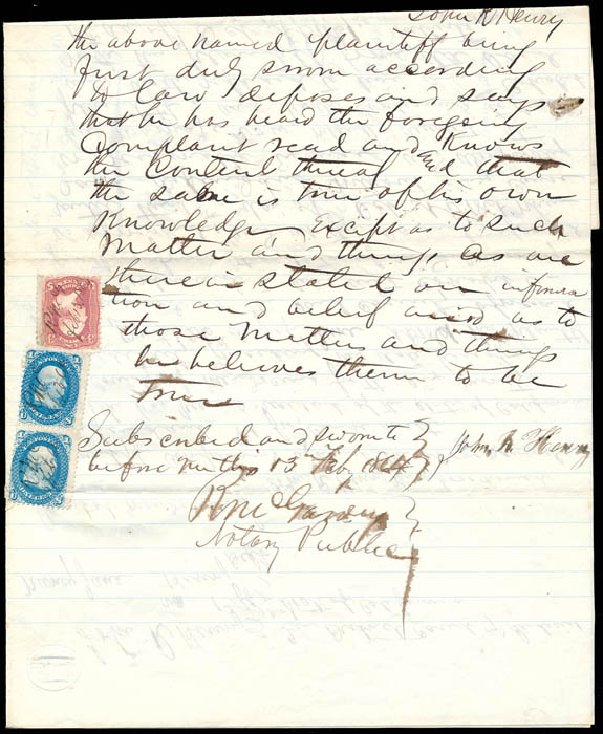 John R Henry
the above named plaintiff being
first duly sworn according
to law deposes and says
that he has heard the foregoing
Complaint read and Knows
the Content thereof and that
the same is true of his own
Knowledge Except as to such
Matter and things as are
therein stated on informa
tion and belief and as to
those Matters and things
he believes them to be
true
Subscribed and sworn to
before me this 13 Feb 1864
John R Henry
Notary Public